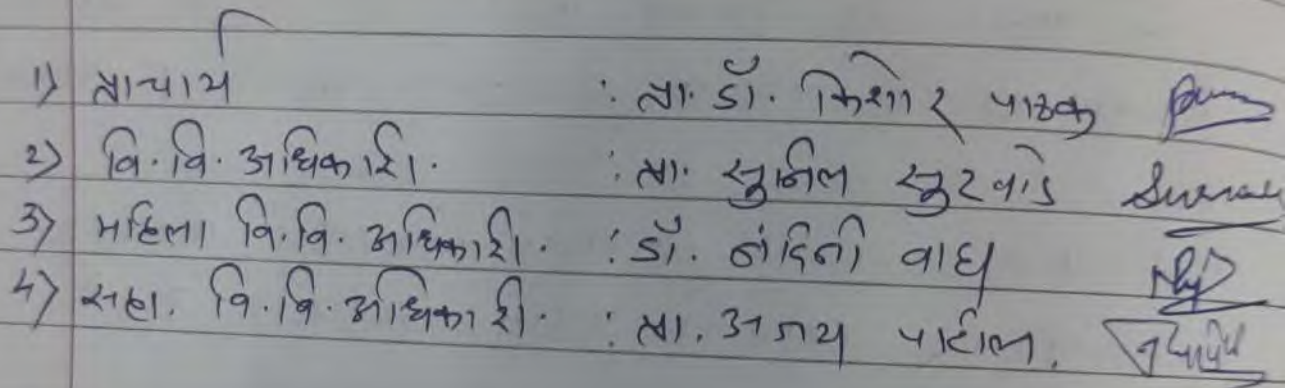 1) प्राचार्य : प्रा. डॉ. किशोर पाठक
2) वि. वि. अधिकारी. : प्रा. सुनिल सुरवाडे
3) महिला वि. वि. अधिकारी. : डॉ. नंदिनी वाघ
4) सहा. वि. वि. अधिकारी. : प्रा. अजय पाटील.